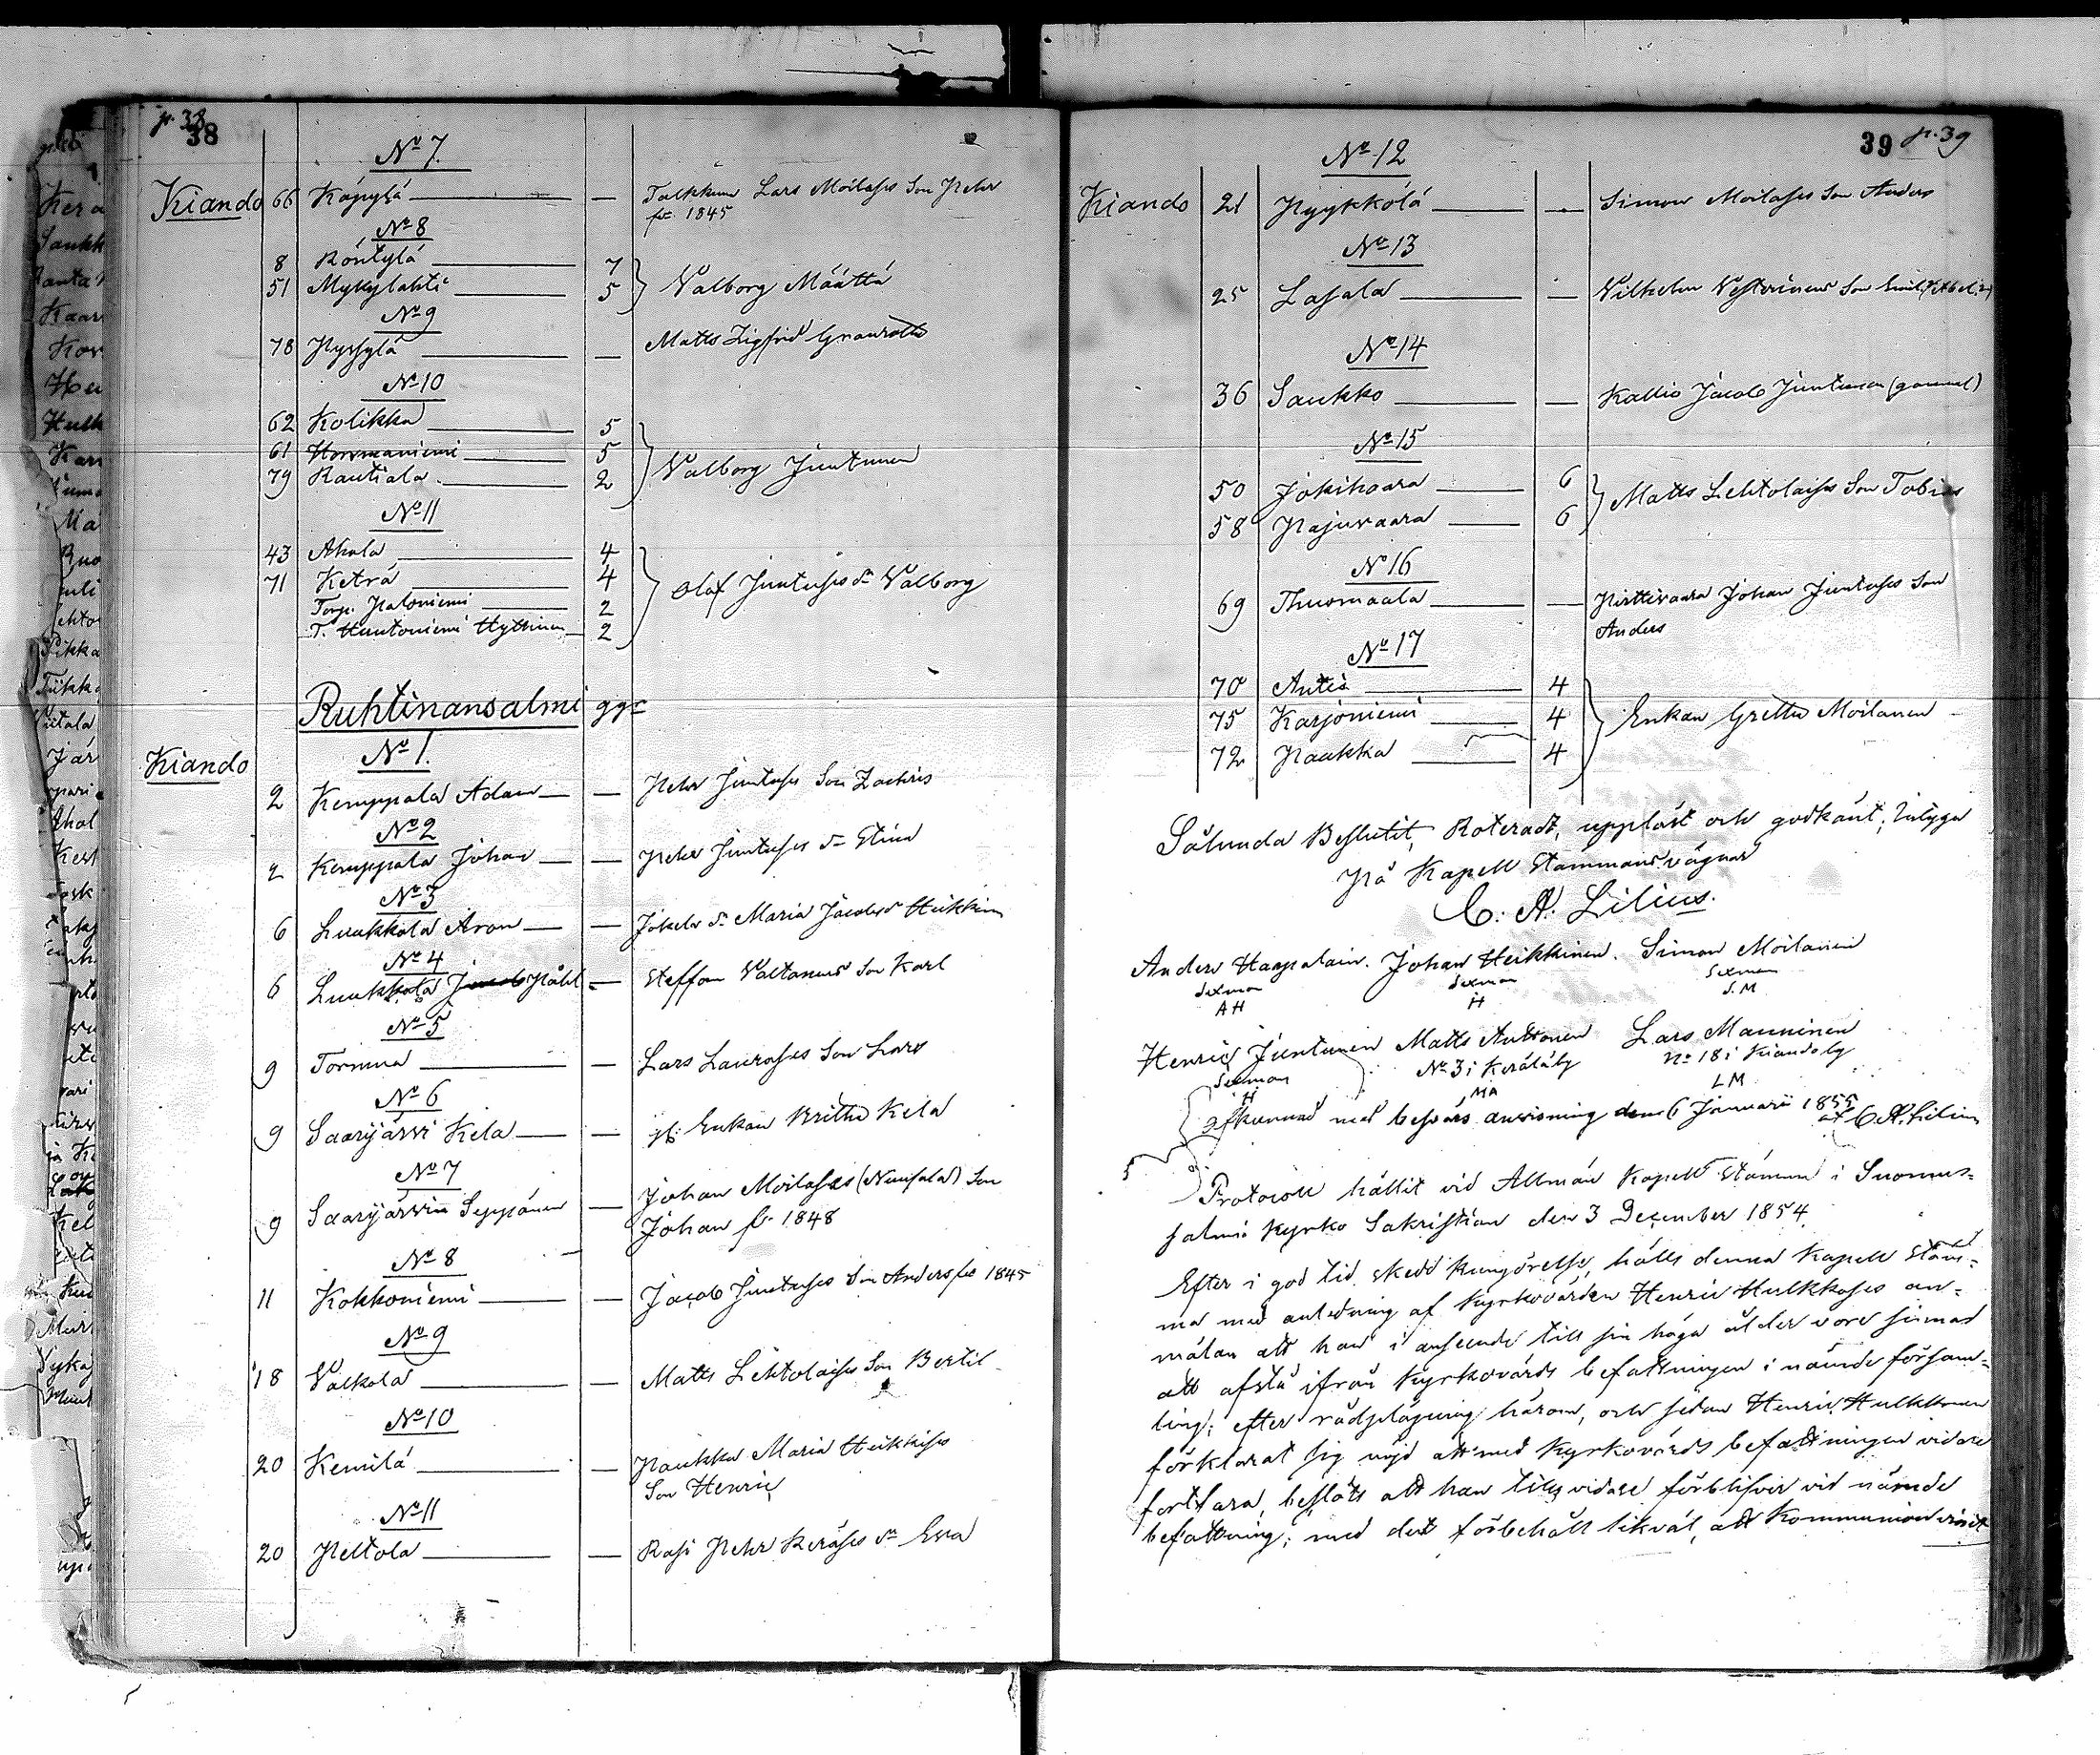 p. 38
38
No 7.
Kiando 66 Käpylä — — Talkkuna Lars Moilases Son Pehr
fö: 1845
No 8
8 Röntylä — 7
51 Mykylahti — 5 } Valborg Määttä
No 9
78 Pyssylä — — Matts Zigfrid Granroth
No 10
62 Kolikka — 5
61 Hovmaniemi — 5
79 Rautiala — 2 } Valborg Juntunen
No 11
43 Ahola — 4
71 Keträ — 4
Torp. Paloniemi — 2
T. Huutoniemi Hyttinen — 2 } Olof Juntuses dr Valborg
Ruhtinansalmi
Kiando
No 1.
2 Kemppala Adam — — Pehr Juntuses Son Zachris
No 2
2 Kemppala Johan — — Pehr Juntuses dr Stina
No 3
6 Luukkola Aron — — Jokela dr Maria Jacobsdr Heikkinen
No 4
6 Luukkola Jacob Påhl — Steffan Valtanens Son Karl
No 5
9 Tormua — — Lars Laurases Son Lars
No 6
9 Saarijärvi Kela — — Enkan Britha Kela
No 7
9 Saarijärvi Seppänen — Johan Moilases (Näusälä) Son
Johan fö: 1848
No 8
11 Kokkoniemi — — Jacob Juntuses Son Anders fö 1845
No 9
18 Valkola — — Matts Lehtolaises Son Bertil
No 10
20 Kemilä — — Paukku Maria Heikkises
Son Henric
No 11
20 Peltola — — Rasi Pehr Keräses dr Eva
39 p. 39
No 12
Kiando 21 Pyykkölä — — Simon Moilases Son Anders
No 13
25 Lasala — — Vilhelm Vesterinens Son Emil
No 14
36 Saukko — — Kallio Jacob Juntunen (gammel)
No 15
50 Jokihaara — 6
58 Pajuvaara — 6 } Matts Lehtolaises Son Tobias
No 16
69 Thuomaala — — Pirttivaara Johan Juntuses Son
Anders
No 17
70 Antis — 4
75 Karjoniemi — 4
72 Paukku — 4 } Enkan Gretha Moilanen
Sålunda Beslutit, Roteradt, uppläst och godkänt; intyga
På Kapell Stämmans vägnar
C. A. Lilius.
Anders Haapalain. Johan Heikkinen. Simon Moilanen
Sexman Sexman Sexman
AH H S.M
Henric Juntunen Matts Anttonen Lars Manninen
Sexman No 3 i Keräläby No 18 i Kiandoby
H MA LM
afkunnad med besvärs anvisning den 6 Januarii 1855
af C. A. Lilius
Protocoll hållit vid Allmän Kapell Stämma i Suomus-
salmi Kyrko Sakristian den 3 December 1854.
Efter i god tid skedd kungörelse, hålls denna Kapell Stäm-
ma med anledning af Kyrkovärden Henric Hulkkoses an-
mälan att han i anseende till sin höga ålder vore sinnad
att afstå ifrån Kyrkovärds befattningen i nämde försam-
ling; efter rådplägning härom, och sedan Henric Hulkkonen
förklarat sig nöjd att med Kyrkovärds befattningen vidare
fortfara, beslöts att han tills vidare förblifver vid nämde
befattning; med det förbehåll likväl, att Kommunion vinet